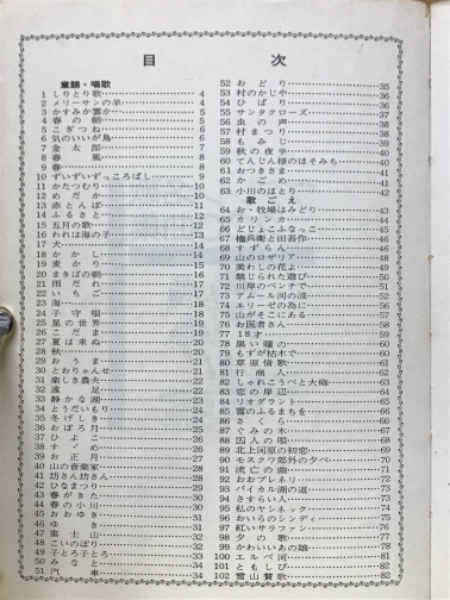 目次
童謡・唱歌
1 しりとり歌 4
2 メリーサンの羊 4
3 かすみか雲か 4
4 春の朝 5
5 こぎつね 6
6 気のいいが鳥 6
7 金太郎 7
8 春風 8
9 春 8
10 ずいずいずっころばし 9
11 かたつむり 10
12 めだか 10
13 赤とんぼ 11
14 ふるさと 12
15 五月の歌 12
16 われは海の子 13
17 犬 14
18 かかし 14
19 麦かり 15
20 まきばの朝 16
21 雨だれ 17
22 いちご 17
23 海 18
24 子守唄 18
25 星の世界 19
26 こだま 19
27 夏は来ぬ 20
28 秋 20
29 おうま 21
30 とおりゃんせ 21
31 楽しき農夫 22
32 遠足 22
33 静かな湖 23
34 とうだいもり 24
35 冬げしき 24
36 おぼろ月 25
37 ひよこ 26
38 すゞめ 26
39 お正月 27
40 山の音楽家 28
41 坊さん坊さん 28
42 ひなまつり 29
43 春がきた 30
44 春の小川 30
45 おおゆき 31
46 ゆき 31
47 富士山 32
48 こいのぼり 32
49 子とろ子とろ 33
50 みなと 34
51 汽車 34
52 おどり 35
53 村のかじや 36
54 ひばり 36
55 サンタクローズ 37
56 虫の声 38
57 村まつり 38
58 もみじ 39
59 秋の夜半 40
60 てんじん様のほそみち 40
61 おつきさま 41
62 かごめ 41
63 小川のほとり 42
歌ごえ
64 お・牧場はみどり 43
65 カリンカ 44
66 どじょこふなっこ 45
67 権兵衛と田吾作 46
68 すずらん 46
69 山のロザリア 48
70 美わしの花よ 49
71 禁じられた遊び 50
72 川岸のベンチで 51
73 アムール河の波 52
74 エリーゼの為に 56
75 山がそこにある 57
76 お医者さん 58
77 18才 59
78 黒い瞳の 60
79 もずが枯木で 60
80 草原情歌 61
81 行商人 62
82 しゃれこうべと大砲 63
83 恋の岸辺 64
84 リオグランド 65
85 雪のふるまちを 66
86 さくら 66
87 ぐみの木 67
88 囚人の唄 68
89 北上河原の初恋 69
90 モスクワ郊外の夕べ 70
91 流亡の曲 71
92 おおブレネリ 72
93 バイカル湖の道 73
94 さすらい人 73
95 私のヤシネック 74
96 おいらのシンディ 75
97 紅いサラファン 76
98 夕の歌 77
99 かわいいあの娘 78
100 エルベ河 81
101 ともしび 82
102 雪山賛歌 82